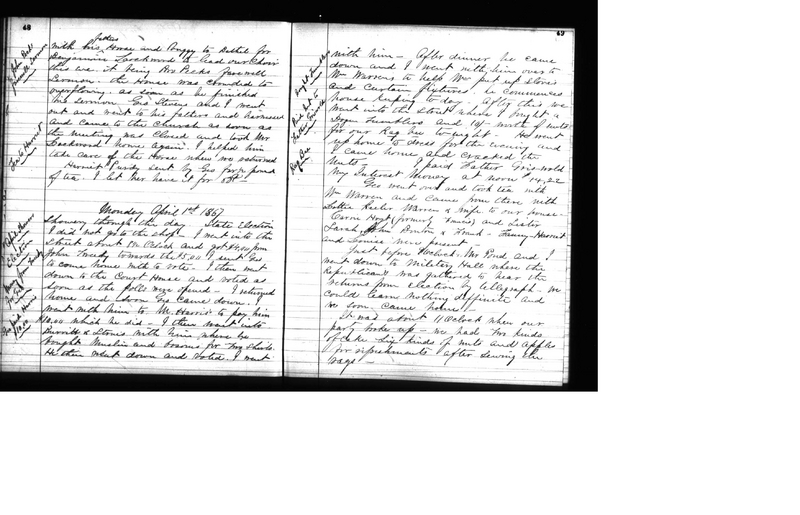 48
fathers
with his Horse and Buggy to Bethel for
Benjamin Lockwood to lead our Choir
this eve it being Bro Pecks farewell
Sermon - the House was crowded to
overflowing. as soon as he finished
his Sermon Geo Stevens and I went
out and went to his fathers and harnessed
and came to the Church as soon as
the meeting was closed and took Mr
Lockwood home again. I helped him
take care of the Horse when we returned
Harriet Purdy sent by Geo for ½ pound
of tea. I let her have it for
Tea to Harriet
Monday April 1st 1867
Showery through the day State Election
I did not go to the shop - I went into the
street about 10 Oclock and got $4.00 from
John Tweedy towards the $5.00 I sent Geo
to come home with to vote - I then went
down to the Court House and voted as
soon as the polls were opened - I returned
home and soon Geo came down. I
went with him to Mr Harris to pay him
10.00 which he did - I then went into
with him where he
bought Muslin and bosoms for two Shirts.
He then went down and voted. I went
Election
Geo paid Harris
10.00
49
with him - After dinner he came
down and I went with him over to
Wm Warrens to help Wm put up Stoves
and Curtain fixtures. he commences
house keeping to day. After this we
went into the Street where I bought a
Dozen Tumblers and worth of nuts
for our Rag bee to night - He went
up home to for the evening and
I came home and cracked the
nuts - I paid Father Griswold
my Interest Money at noon $14.22
Geo went out and took tea with
Wm Warren and came from there with
Warren & Wife to our house -
Hoyt (formerly ) and Sister
Sarah, John & - Fanny - Harriet
and Louisa were present -
Just before 9 oclock Mr Pond and I
went down to Military Hall where the
Republicans was gathered to hear the
returns from Election by telegraph - We
could learn nothing definite and
we soon came home -
It was about 11 Oclock when our
party broke up - We had two kinds
of cake six kinds of nuts and apples
for refreshments after sewing the
rags -
Rag Bee